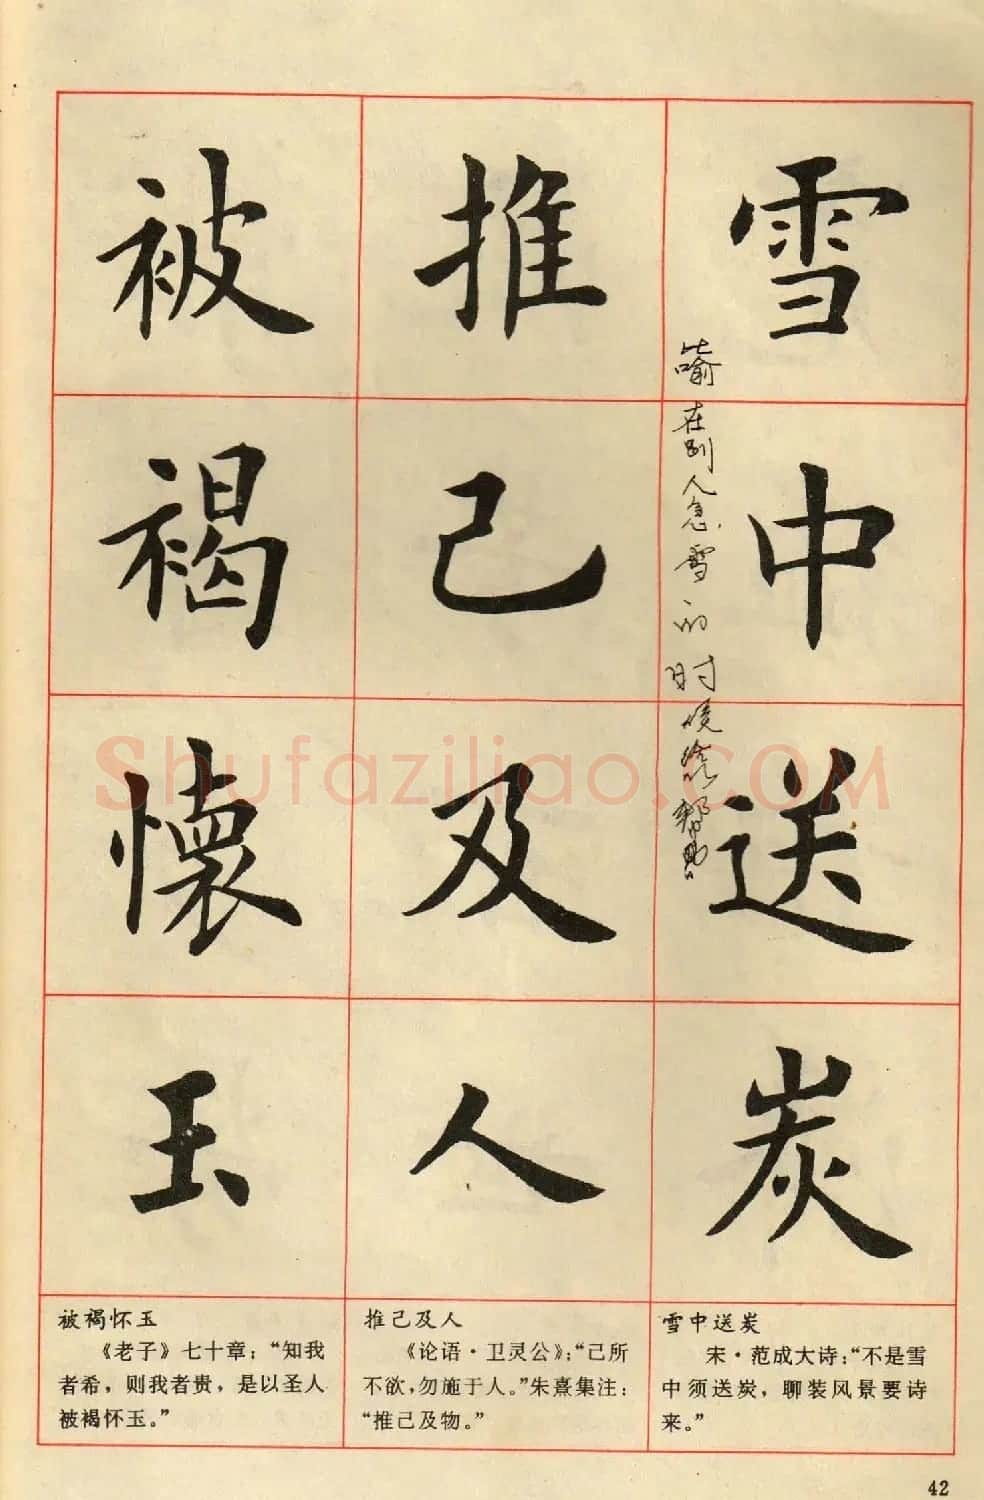 雪中送炭
喻在别人急需的时候给以帮助
推己及人
被褐懷玉
雪中送炭
宋·范成大诗：“不是雪
中须送炭，聊装风景要诗
来。”
推己及人
《论语·卫灵公》：“己所
不欲，勿施于人。”朱熹集注：
“推己及物。”
被褐怀玉
《老子》七十章：“知我
者希，则我者贵，是以圣人
被褐怀玉。”
42
Shufaziliao.COM